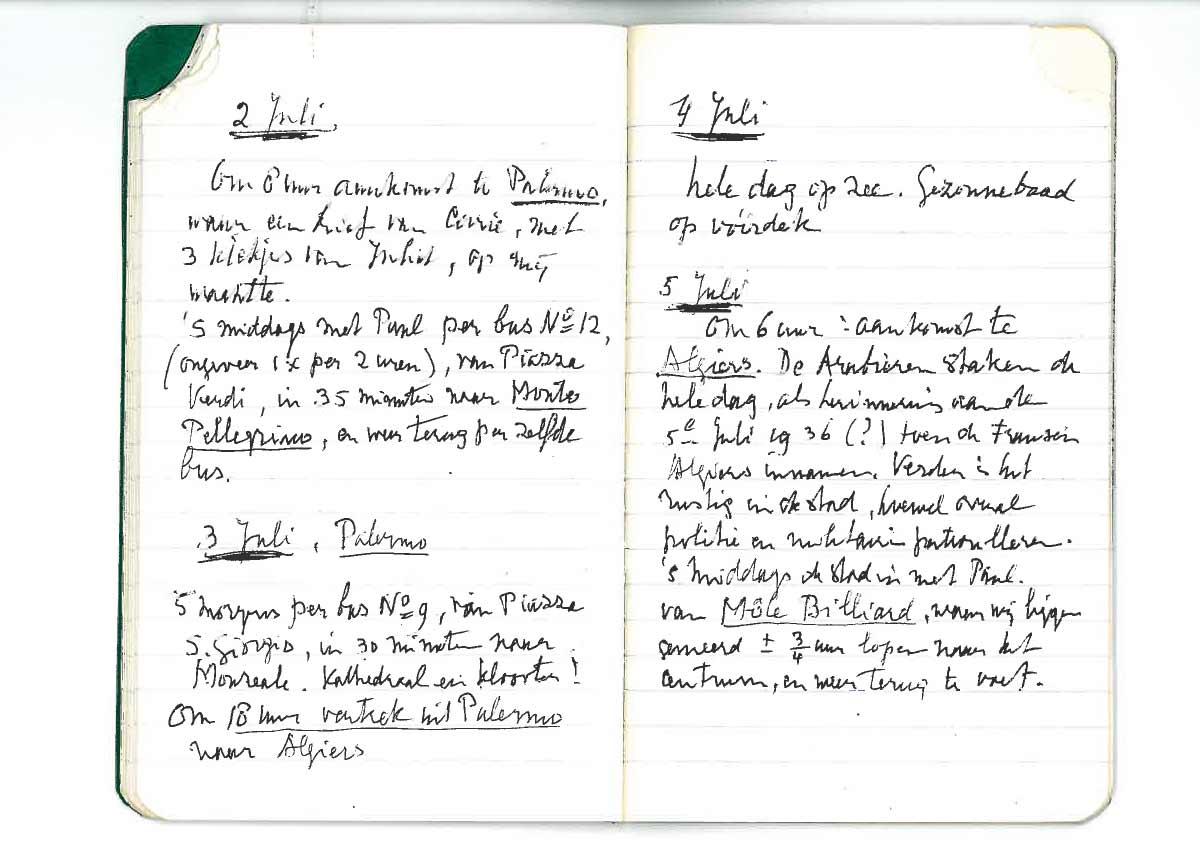 2 Juli,
Om 8 uur aankomst te Palermo,
waar een brief van Corrie, met
3 kiekjes van, op mij
wachtte.
's middags met Paul per bus No 12,
(ongeveer 1x per 2 uren), van Piazza
Verdi, in 35 minuten naar Monte
Pellegrino, en weer terug per zelfde
bus.
3 Juli, Palermo
's morgens per bus No 9, van Piazza
S. Giorgio, in 30 minuten naar
Monreale. Kathedraal en klooster!
Om 18 uur vertrek uit Palermo
naar Algiers
4 Juli
hele dag op zee. Gezonnebaad
op vóórdek
5 Juli
Om 6 uur : aankomst te
Algiers. De Arabieren staken de
hele dag, als herinnering aan de
5e Juli 1936 (?) toen de Fransen
Algiers innamen. Verder is het
rustig in de stad, hoewel overal
politie en militairen patrouilleren.
's middags de stad in met Paul.
van Môle Billiard, waar wij liggen
gemeerd ± 3/4 uur lopen naar het
centrum, en weer terug te voet.